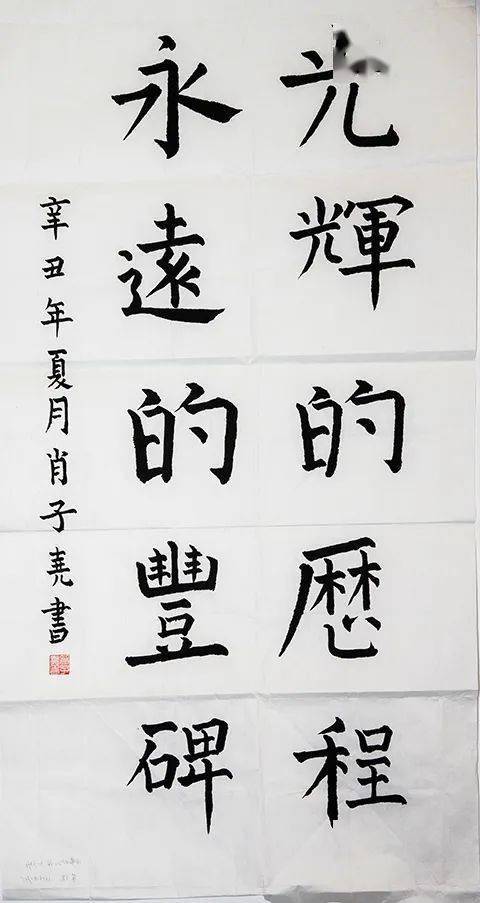 光輝的歷程
永遠的豐碑
辛丑年夏月肖子尭書